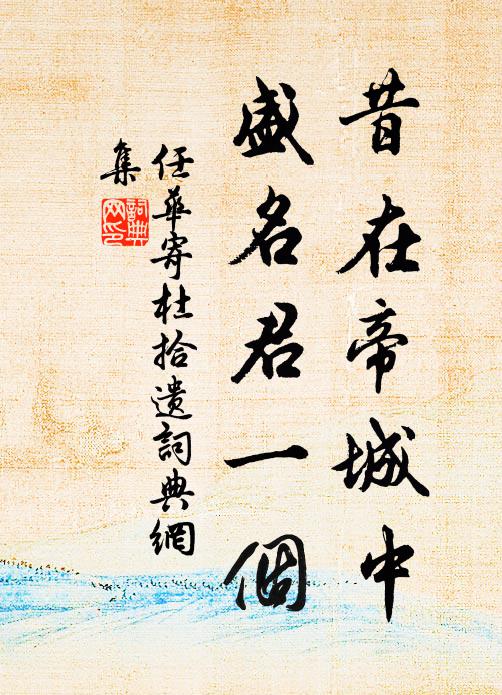 昔在帝城中
盛名君一個
任華寄杜拾遺詞典網
集
詞典
网印